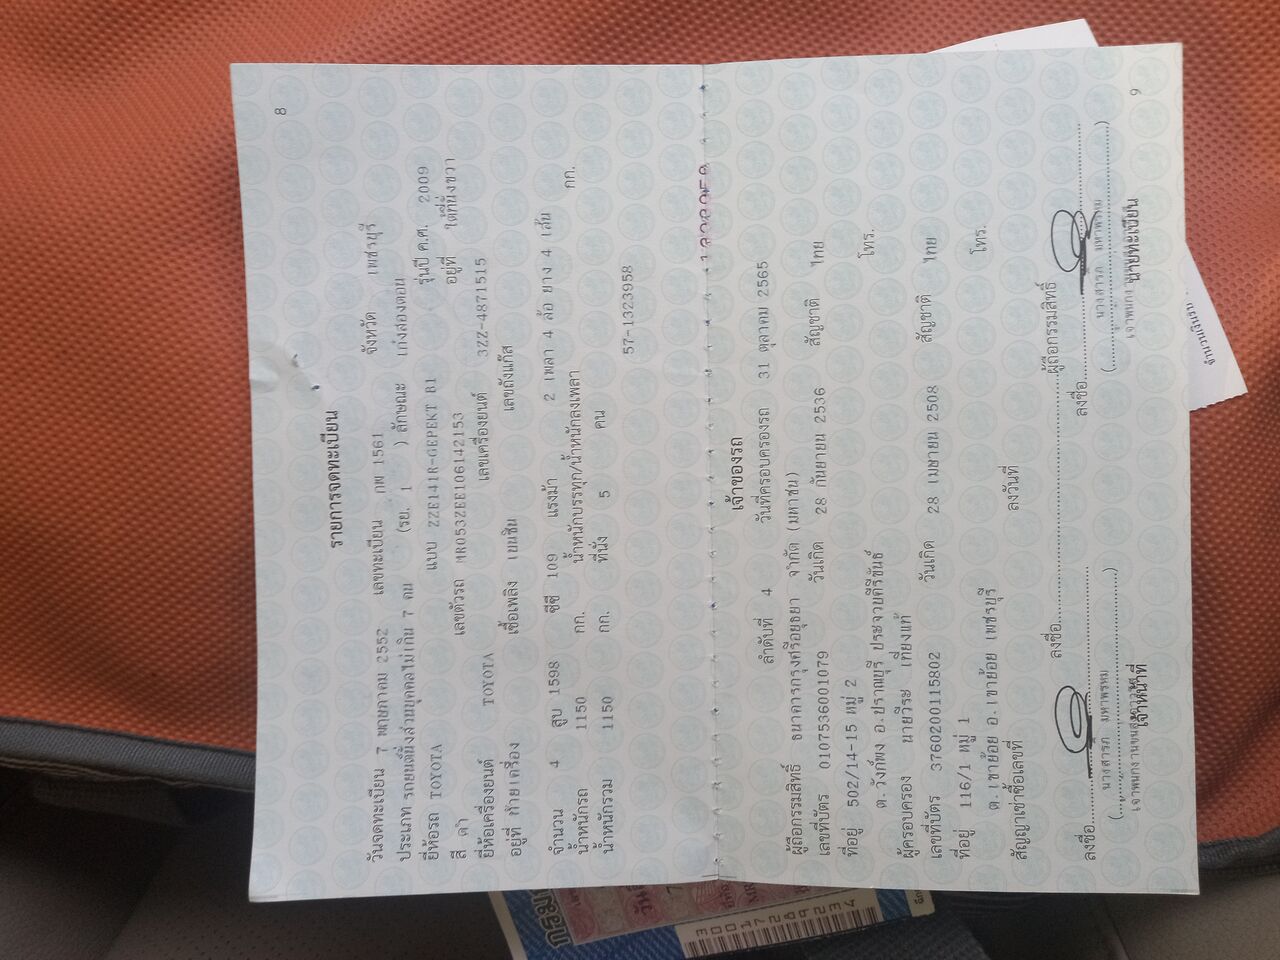 8
รายการจดทะเบียน
วันจดทะเบียน 7 พฤษภาคม 2552 เลขทะเบียน กพ 1561 จังหวัด เพชรบุรี
ประเภท รถยนต์นั่งส่วนบุคคลไม่เกิน 7 คน (รย. 1 ) ลักษณะ เก๋งสองตอน
ยี่ห้อรถ TOYOTA แบบ ZZE141R-GEPEKT B1 รุ่นปี ค.ศ. 2009
สี ดำ เลขตัวรถ MR053ZEE106142153 อยู่ที่ ใต้ที่นั่งขวา
ยี่ห้อเครื่องยนต์ TOYOTA เลขเครื่องยนต์ 3ZZ-4871515
อยู่ที่ ท้ายเครื่อง เชื้อเพลิง เบนซิน เลขถังแก๊ส
จำนวน 4 สูบ 1598 ซีซี 109 แรงม้า 2 เพลา 4 ล้อ ยาง 4 เส้น
น้ำหนักรถ 1150 กก. น้ำหนักบรรทุก/น้ำหนักลงเพลา กก.
น้ำหนักรวม 1150 กก. ที่นั่ง 5 คน
57-1323958
เจ้าของรถ
ลำดับที่ 4 วันที่ครอบครองรถ 31 ตุลาคม 2565
ผู้ถือกรรมสิทธิ์ ธนาคารกรุงศรีอยุธยา จำกัด (มหาชน)
เลขที่บัตร 0107536001079 วันเกิด 28 กันยายน 2536 สัญชาติ ไทย
ที่อยู่ 502/14-15 หมู่ 2
ต.วังก์พง อ.ปราณบุรี ประจวบคีรีขันธ์ โทร.
ผู้ครอบครอง นายวีระ เที่ยงแท้
เลขที่บัตร 3760200115802 วันเกิด 28 เมษายน 2508 สัญชาติ ไทย
ที่อยู่ 116/1 หมู่ 1
ต.เขาย้อย อ.เขาย้อย เพชรบุรี โทร.
สัญญาเช่าซื้อเลขที่ ลงวันที่
ลงชื่อ ผู้ถือกรรมสิทธิ์
ลงชื่อ ลงชื่อ
นางสารภี มหาพรหม นางสารภี มหาพรหม
เจ้าหน้าที่ นายทะเบียน
9